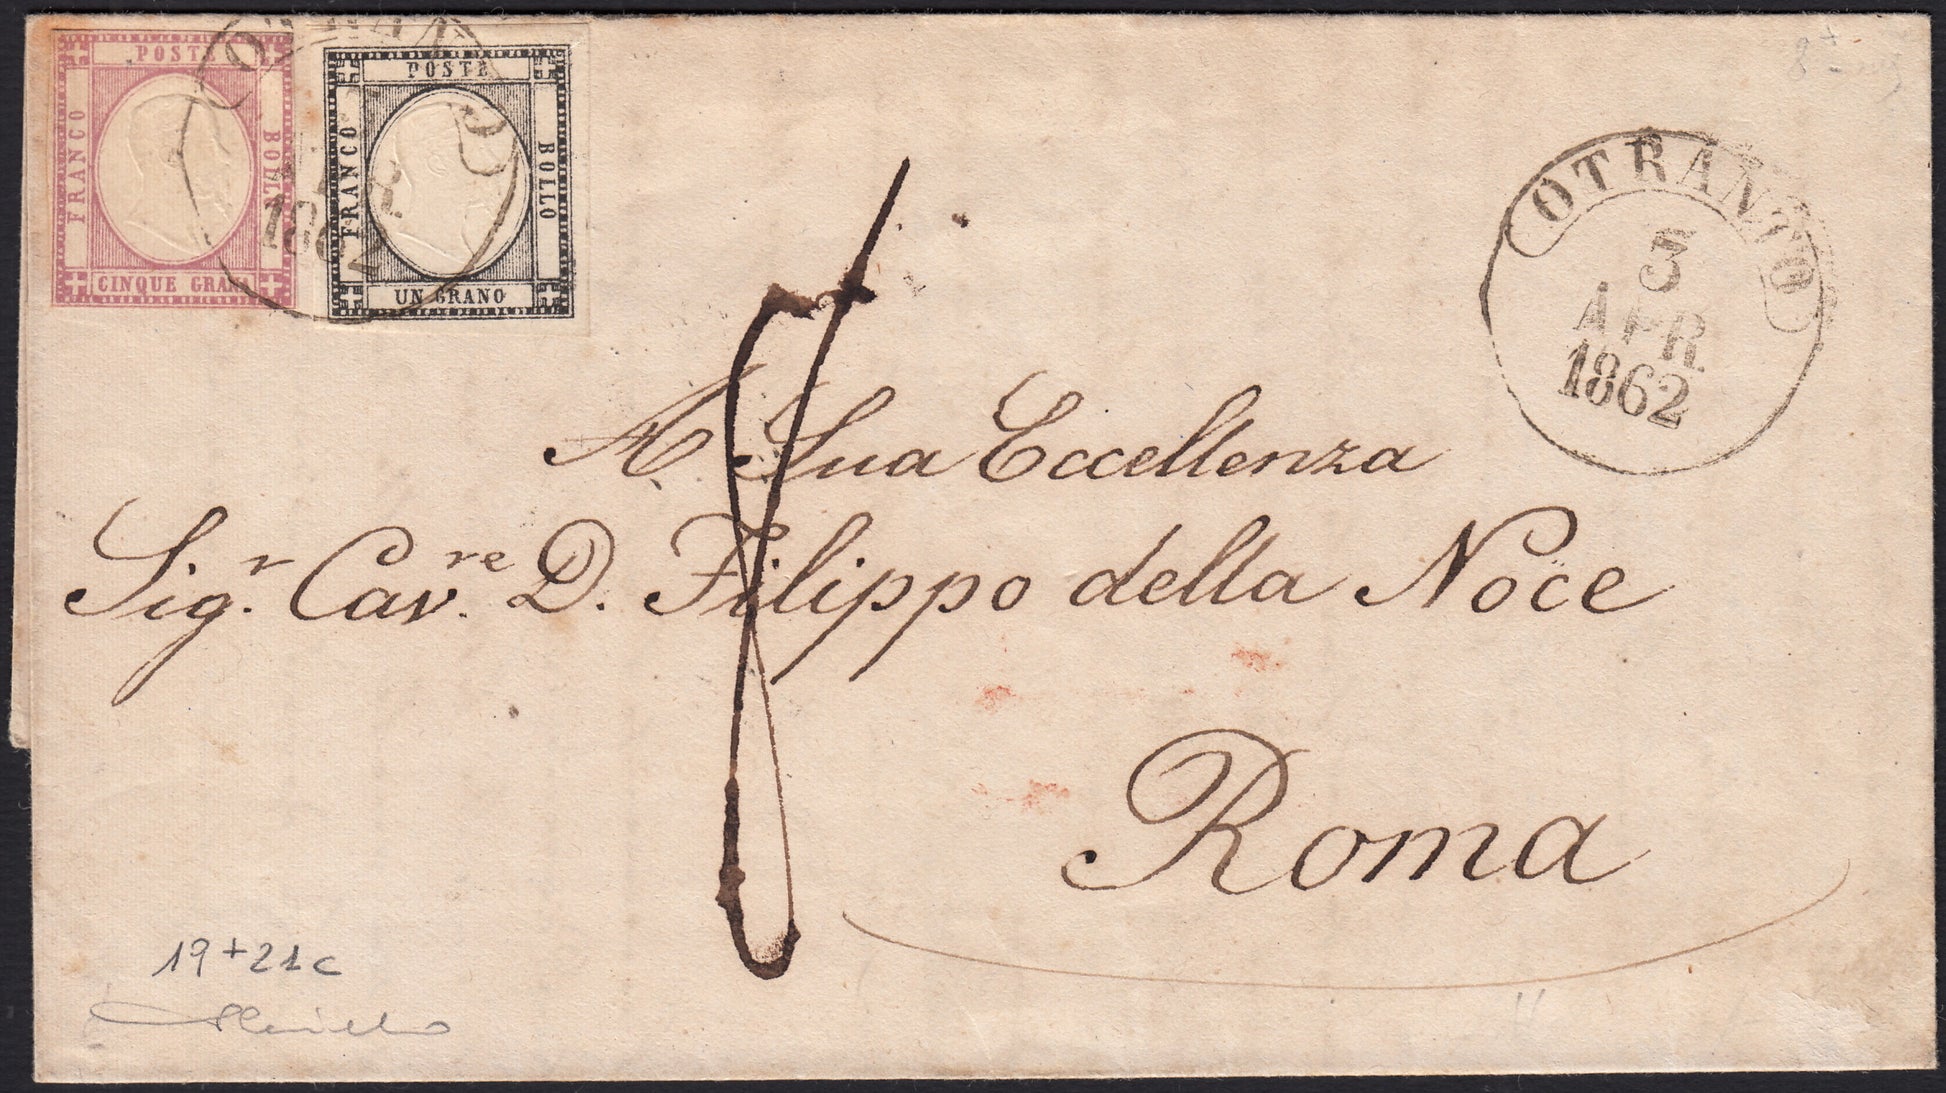 POSTE
FRANCO
BOLLO
CINQUE GRANA
POSTE
FRANCO
BOLLO
UN GRANO
APR
1862
OTRANTO
3
APR
1862
8
A Sua Eccellenza
Sig.r Cav.re D. Filippo della Noce
Roma
19+21c